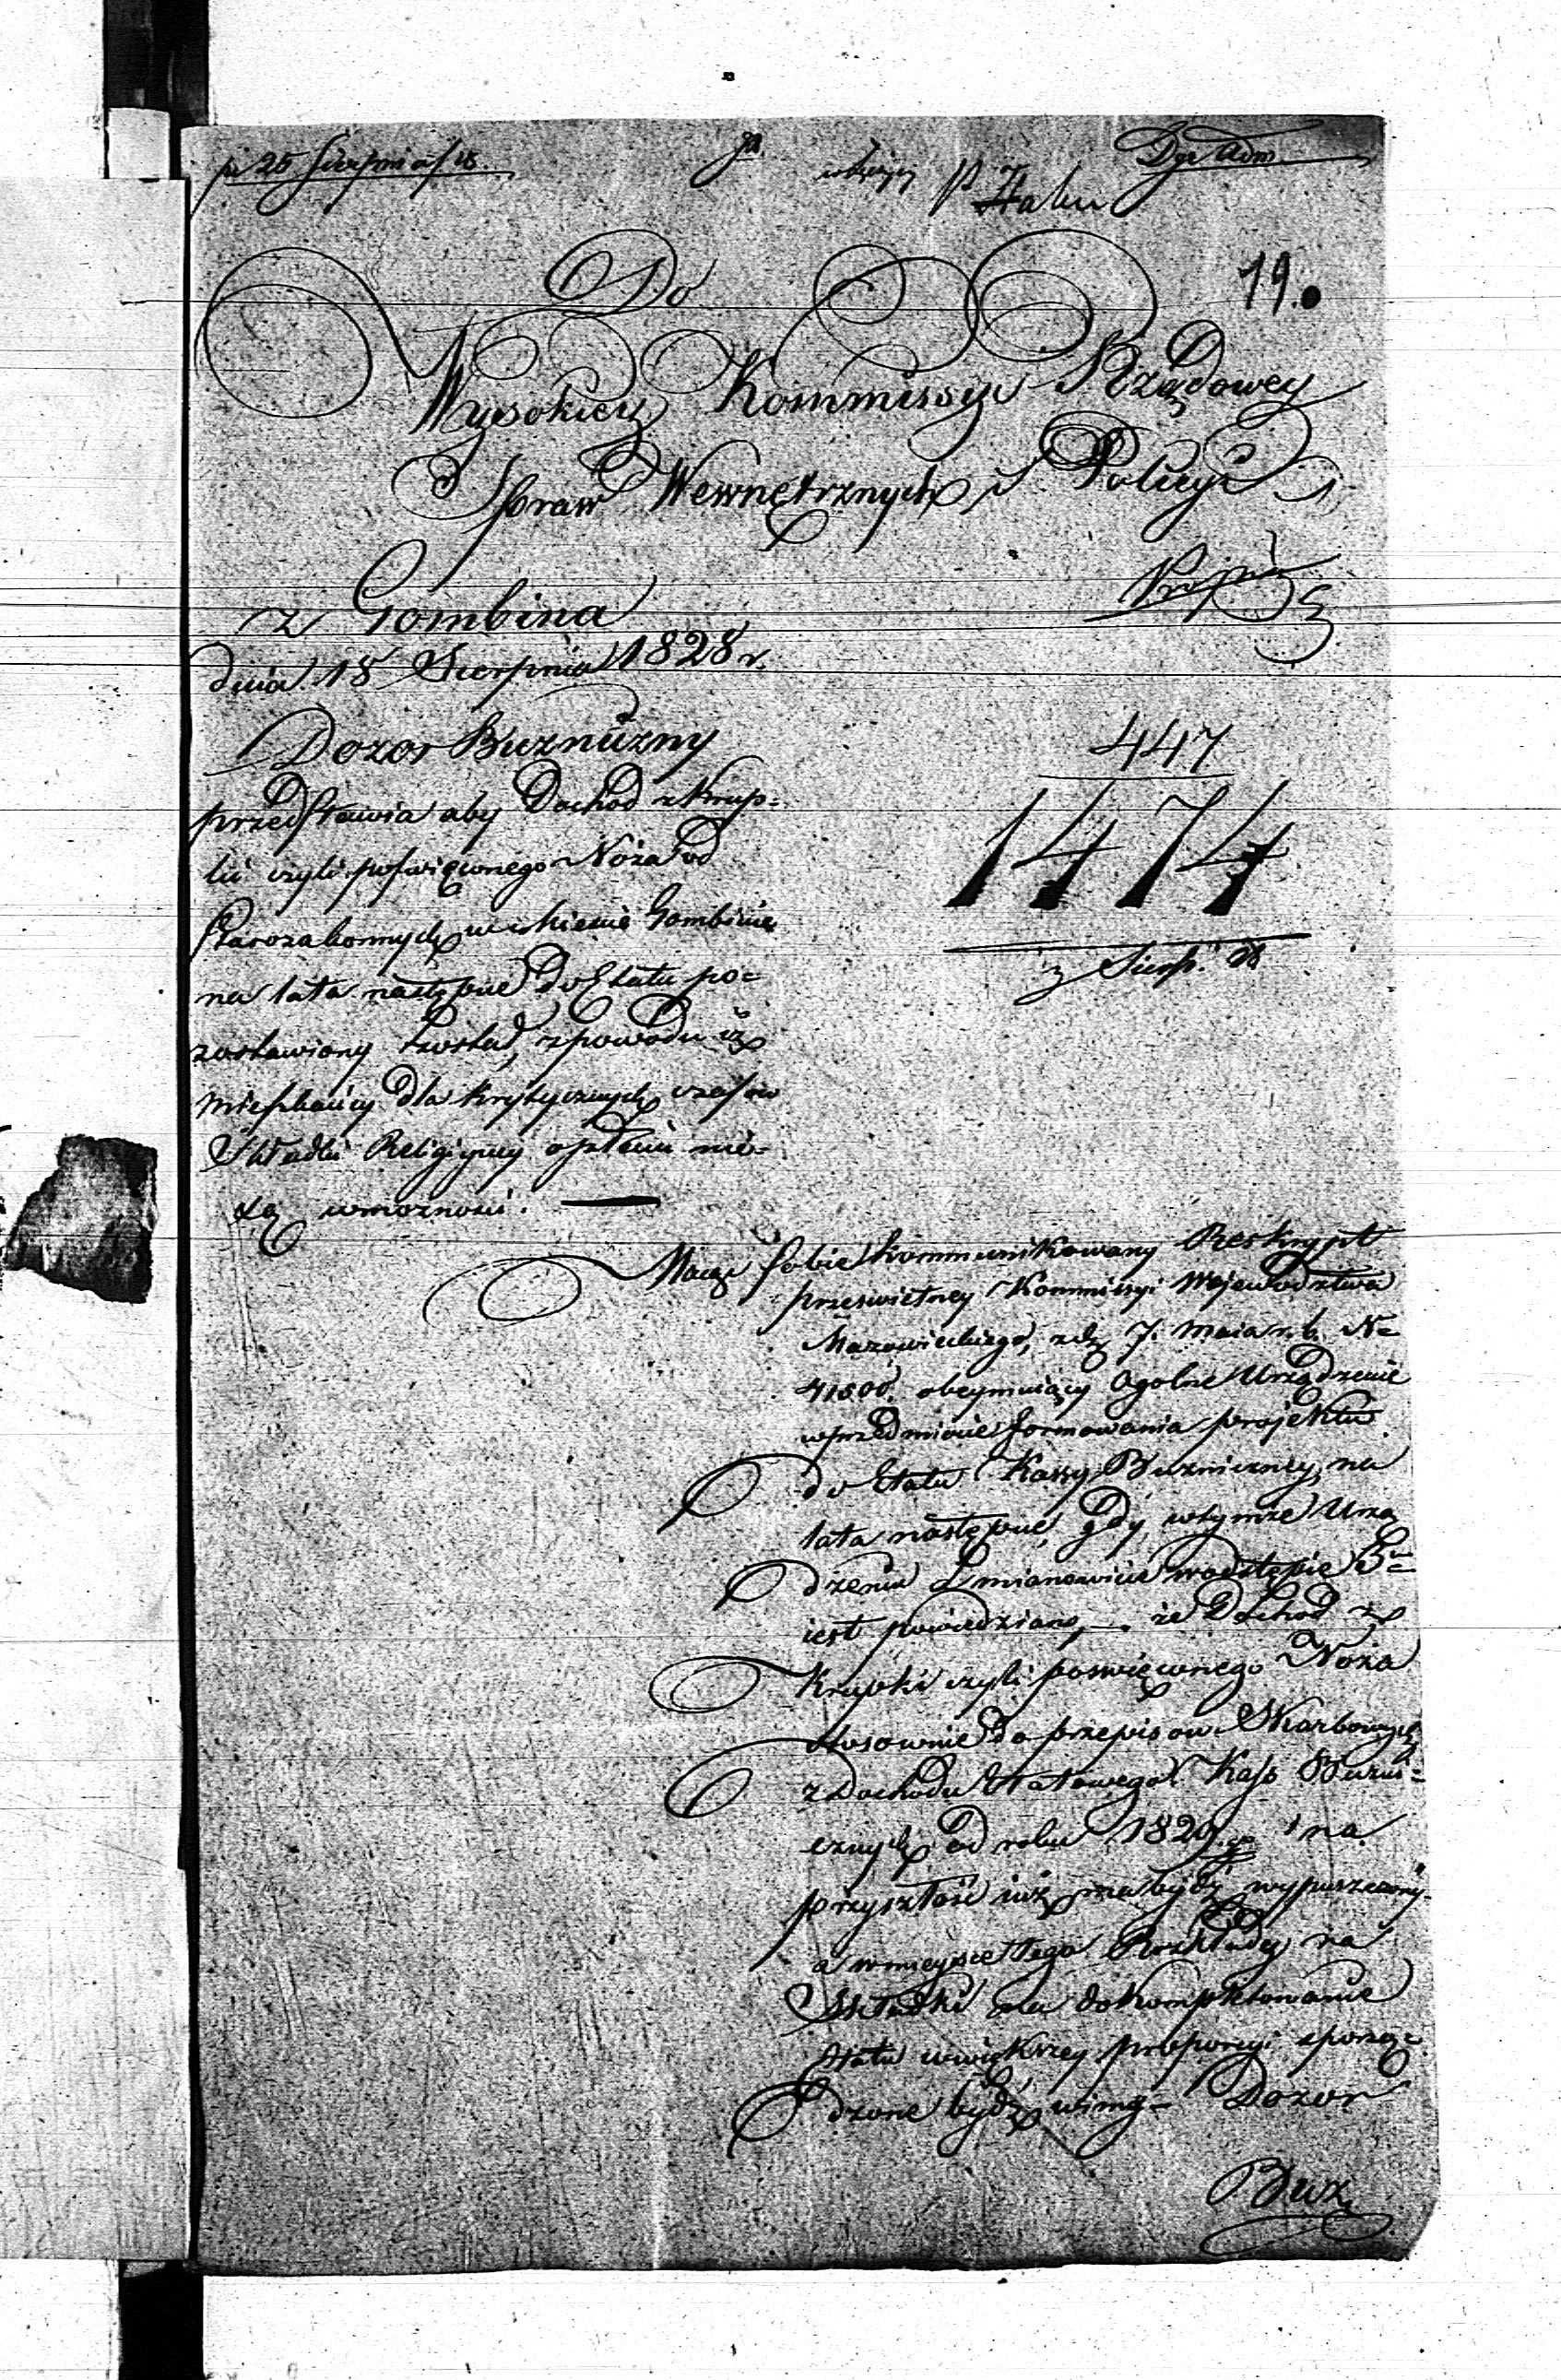 25 Sierpnia
Dyr. Adm.
Hahn
19.
Do
Wysokiey Kommissyi Rządowey
Spraw Wewnętrznych i Policyi
z Gombina
dnia 18 Sierpnia 1828 r.
Dozor Buzniczny
przedstawia aby Dochod z Krup-
ki czyli poswięconego Noża od
Starozakonnych w mieście Gombinie
na lata następne do Etatu po-
zostawiony został, z powodu iż
mieszkańcy dla krytycznych czasow
Składki Religijney opłacić nie-
są w możnosci. —
447
1474
z Sierp. 28
Maiąc sobie kommunikowany Reskrypt
przeswietney Kommissyi Wojewodztwa
Mazowieckiego, z d. 7. Maia r. b. N-
41500. obeymuiący Ogolne Urządzenie
w przedmiocie formowania projektu
do Etatu Kassy Buzniczney na
lata następne, gdy w tymże Urzą
dzeniu Zmianowicie w odstępie 5
iest powiedziano, że Dochod z
Krupki czyli poswięconego Noża
stosownie do przepisow Skarbowych
z Dochodu Etatowego Kass Buzni-
cznych od roku 1829. i na
przyszłość iuż ma bydź wypuszczony
a w mieysce tego Rozkłady na
Składki na dokompletowanie
Etatu w większey proporcyi sporzą-
dzone bydź winny - Dozor
Buz